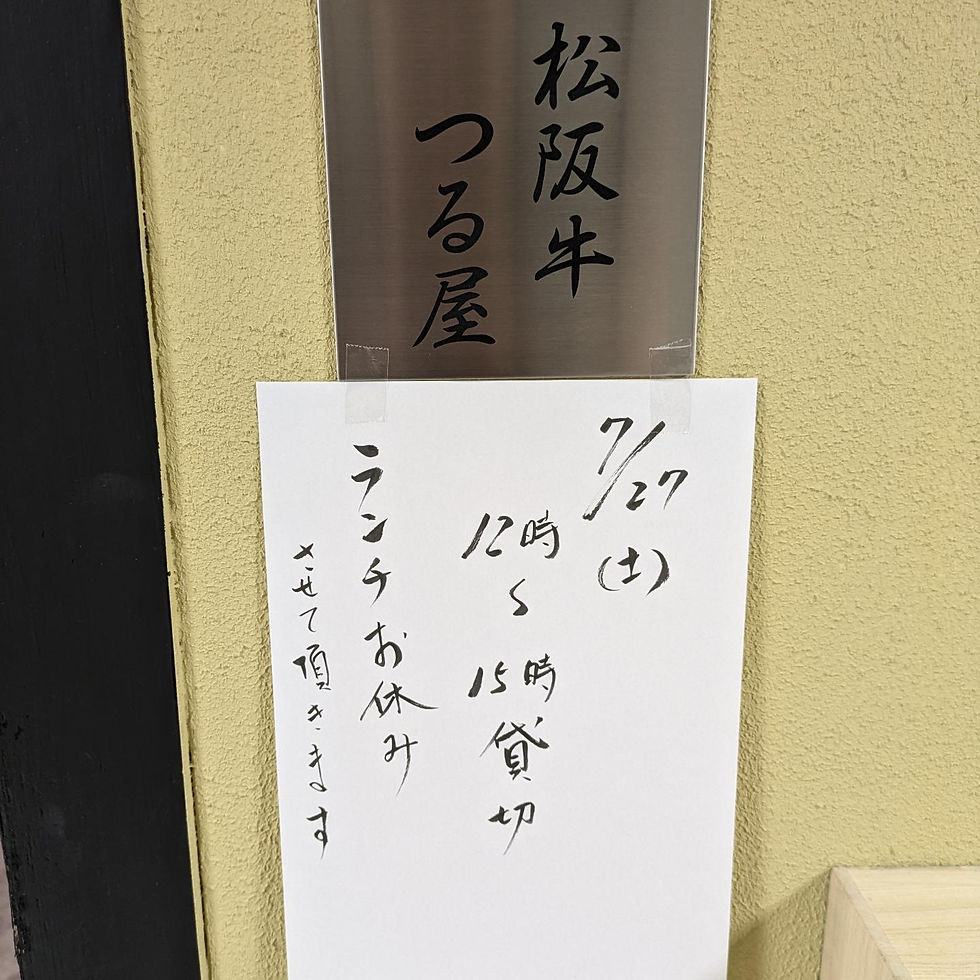 松阪牛
つる屋
7/27
(土)
12時
〜
15時
貸切
ランチお休み
させて頂きます